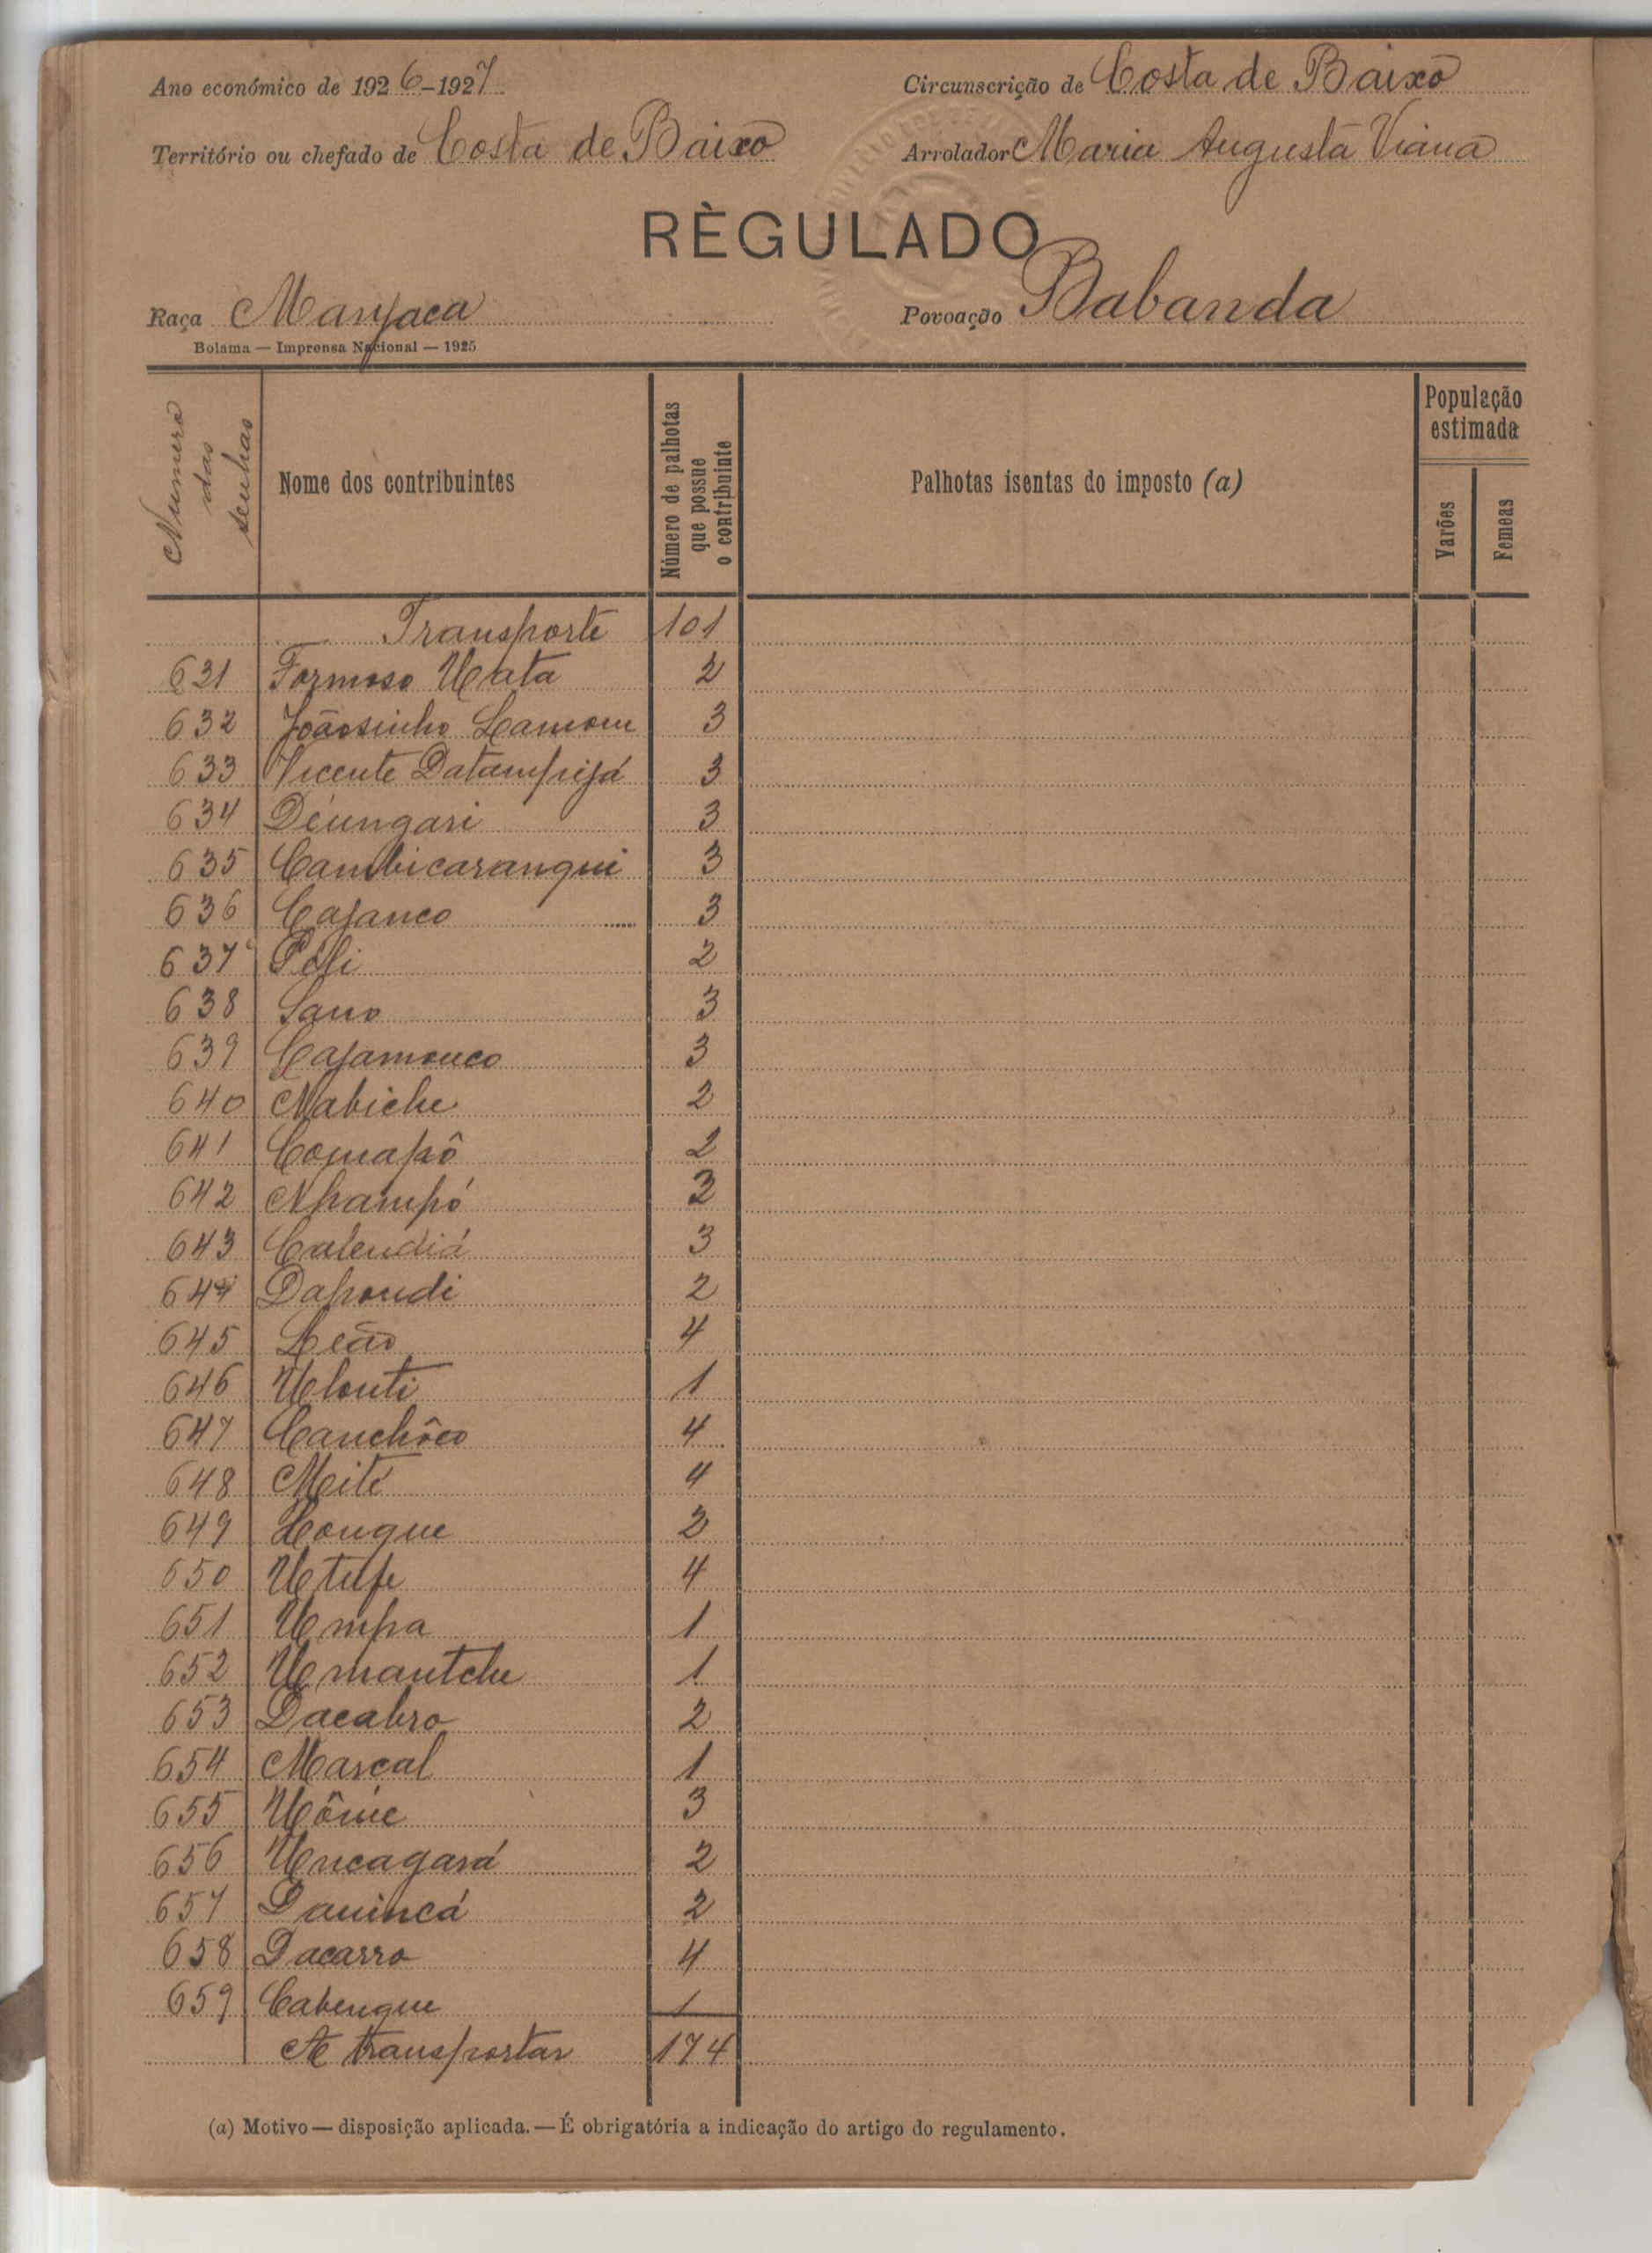 Ano económico de 1926-1927 Circunscrição de Costa de Baixo
Território ou chefado de Costa de Baixo Arrolador Maria Augusta Viana
RÈGULADO
Raça Manjaca Povoação Babanda
Bolama — Imprensa Nacional — 1925
Numero das senhas
Nome dos contribuintes
Número de palhotas que possue o contribuinte
Palhotas isentas do imposto (a)
População estimada
Varões
Femeas
Transporte 101
631 Formoso Uata 2
632 Joãosinho Lamom 3
633 Vicente Datampijá 3
634 Deungari 3
635 Cambicarangui 3
636 Cajanco 3
637 Poli 2
638 Sano 3
639 Cajamonco 3
640 Nabiche 2
641 Comapô 2
642 Nhampó 3
643 Calendiá 3
644 Dapondi 2
645 Leão 4
646 Ulonti 1
647 Canchôco 4
648 Meité 4
649 Longue 2
650 Utupe 4
651 Umpa 1
652 Umantche 1
653 Dacabro 2
654 Marcal 1
655 Uônie 3
656 Uncagará 2
657 Danincá 2
658 Dacarro 4
659 Cabengue 1
A transportar 174
(a) Motivo — disposição aplicada. — É obrigatória a indicação do artigo do regulamento.